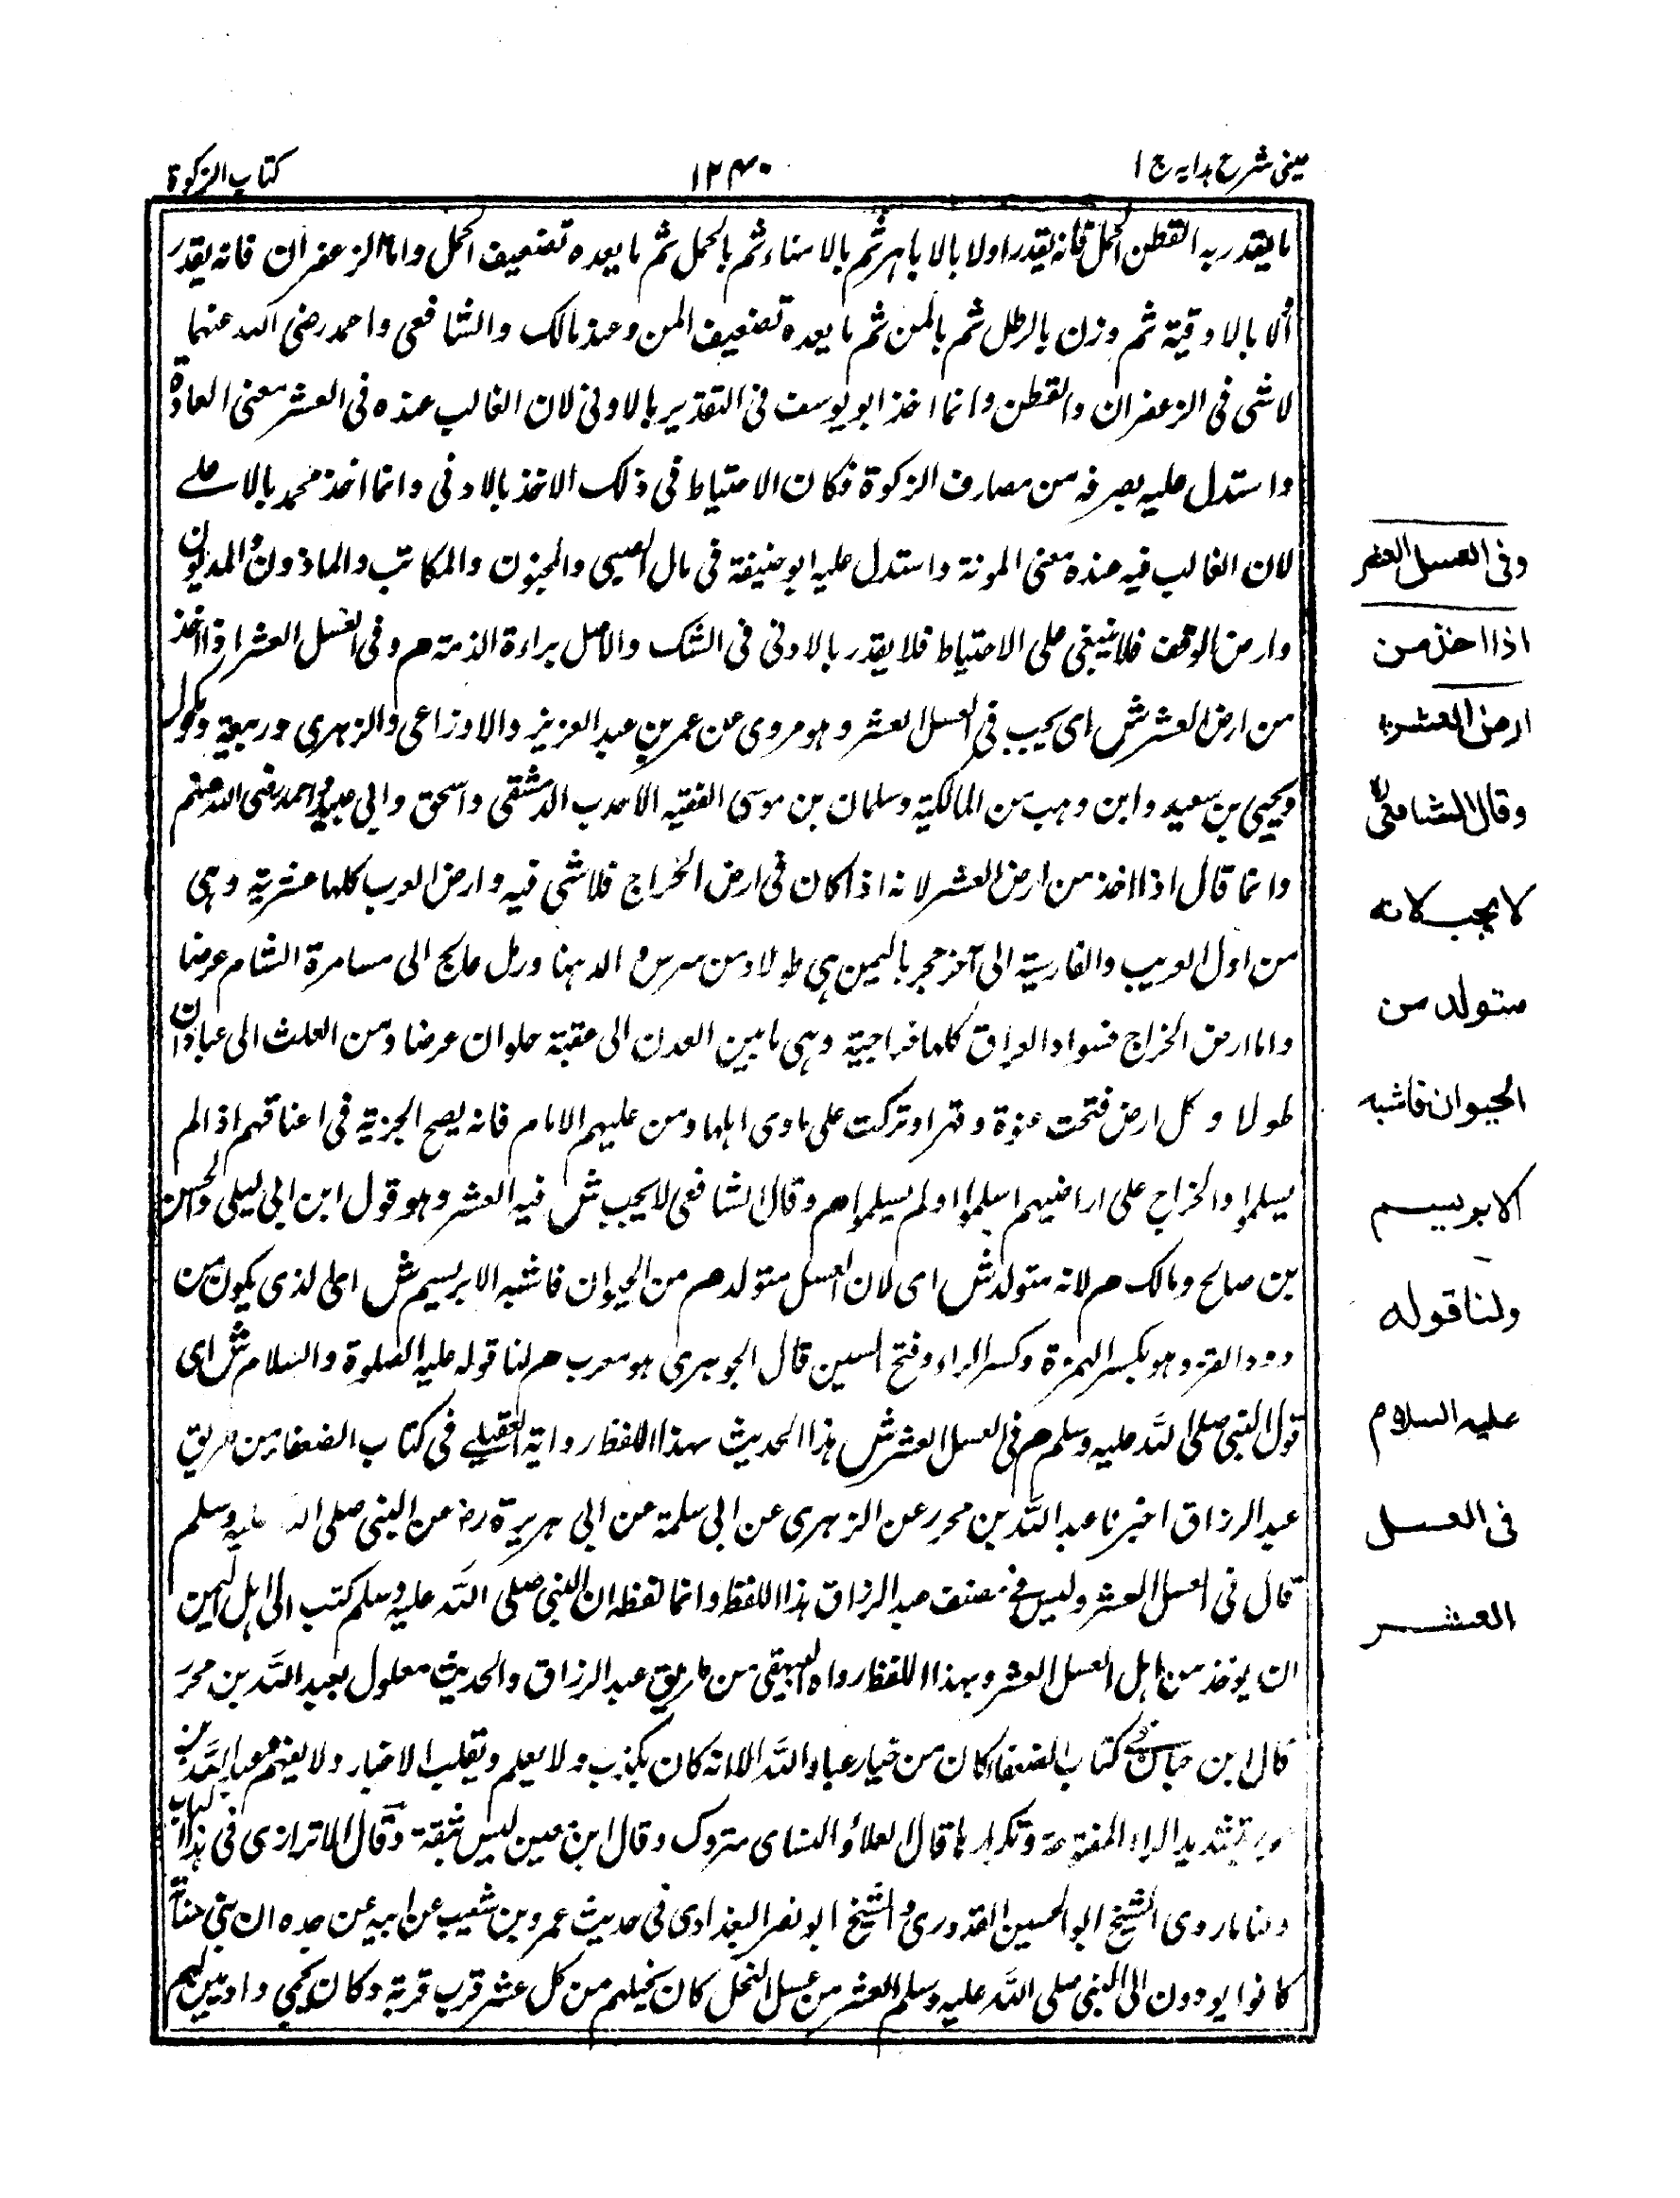 عینی شرح ہدایہ ج ا
۱۲۴۰
کتاب الزکوة
ما یقدر بہ القطن الحمل فانہ یقدر اولا بالا باہر ثم بالامناء ثم بالحمل ثم ما بعدہ تضعیف الحمل واما الزعفران فانہ یقدر
الا بالاوقیة ثم وزن بالرطل ثم بالمن ثم ما بعدہ تضعیف المن وعند مالک والشافعی واحمد رضی اللہ عنہما
لا شی فی الزعفران والقطن وانما اخذ ابو یوسف فی التقدیر بالاونی لان الغالب عندہ فی العشر معنی العادة
واستدل علیہ بصرفہ من مصارف الزکوة فکان الاحتیاط فی ذلک الاخذ بالادنی وانما اخذ محمد بالاعلے
لان الغالب فیہ عندہ معنی المونة واستدل علیہ ابو حنیفة فی مال الصبی والمجنون والمکاتب والماذون والمدیون
وارض الوقف فلا ینبغی علی الاحتیاط فلا یقدر بالادنی فی الشک والاصل براءة الذمة م وفی العسل العشر اذا اخذ
من ارض العشر ش ای یجب فی العسل العشر وہو مروی عن عمر بن عبد العزیز والاوزاعی والزہری وربیعة ومکول
ویحیی بن سعید وابن وہب من المالکیة وسلمان بن موسی الفقیہ الاحدب الدمشقی واسحق وابی عبید واحمد رضی اللہ عنہم
وانما قال اذا اخذ من ارض العشر لانہ اذا کان فی ارض الخراج فلا شی فیہ وارض العرب کلہا عشریة وہی
من اول العریب والقارسیة الی آخر حجر بالیمن ہی طولا ومن سرس و الدہنا ورمل عالج الی مسامرة الشام عرضا
واما ارض الخراج فسواد العراق کلہا خراجیة وہی ما بین العدن الی عقبة حلوان عرضا ومن العلث الی عبادان
طولا وکل ارض فتحت عنوة وقہرا وترکت علی ہادی اہلہا ومن علیہم الامام فانہ یصح الجزیة فی اعناقہم اذا لم
یسلموا والخراج علی اراضیہم اسلموا اولم یسلموا م وقال الشافعی لا یجب ش فیہ العشر وہو قول ابن ابی لیلی والحسن
بن صالح ومالک م لانہ متولد ش ای لان العسل متولد م من الحیوان فاشبہ الابریسم ش ای الذی یکون من
دود القز وہو بکسر الہمزة وکسر الراء وفتح السین قال الجوہری ہو معرب م لنا قولہ علیہ الصلوة والسلام ش ای
قول النبی صلی اللہ علیہ وسلم م فی العسل العشر ش ہذا الحدیث بہذا اللفظ روایة العقیلے فی کتاب الضعفا من طریق
عبد الرزاق اخبرنا عبد اللہ بن محرر عن الزہری عن ابی سلمة عن ابی ہریرة رض عن النبی صلی اللہ علیہ وسلم
قال فی العسل العشر ولیس فے مصنف عبد الرزاق ہذا اللفظ وانما لفظہ ان النبی صلی اللہ علیہ وسلم کتب الی اہل الیمن
ان یوخذ من اہل العسل العشر وبہذا اللفظ رواہ البیہقی من طریق عبد الرزاق والحدیث معلول بعبد اللہ بن محرر
قال ابن حبان فے کتاب الضعفاء کان من خیار عباد اللہ الا انہ کان یکذب ولا یعلم ویقلب الاخبار ولا یفہم عبد اللہ بن
بتشدید الراء المفتوحة وتکرارہا قال العلاؤ النسای متروک وقال ابن معین لیس بثقة وقال الاترازی فی ہذا الباب
ولنا ما روی الشیخ ابو الحسین القدوری والشیخ ابو نصر البغدادی فی حدیث عمرو بن شعیب عن ابیہ عن جدہ ان بنی
کانوا یودون الی النبی صلی اللہ علیہ وسلم العشر من عسل النحل کان نحیلہم من کل عشر قرب قربة وکان یحمی وادیین لہم
وفی العسل العشر
اذا اخذ من
ارض العشر
وقال الشافعیؒ
لا یجب لانه
متولد من
الحیوان فاشبه
الابریسم
ولنا قوله
علیه السلام
فی العسل
العشر